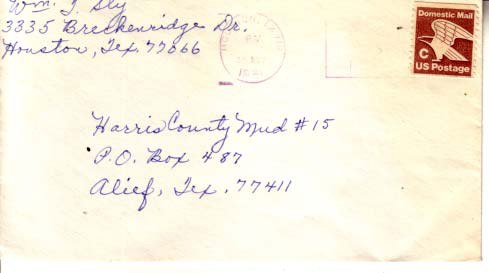 Wm. J. Sly
3335 Breckenridge Dr.
Houston, Tex. 77066
Domestic Mail
C
US Postage
PM
Harris County Mud # 15
P.O. Box 487
Alief, Tex. 77411